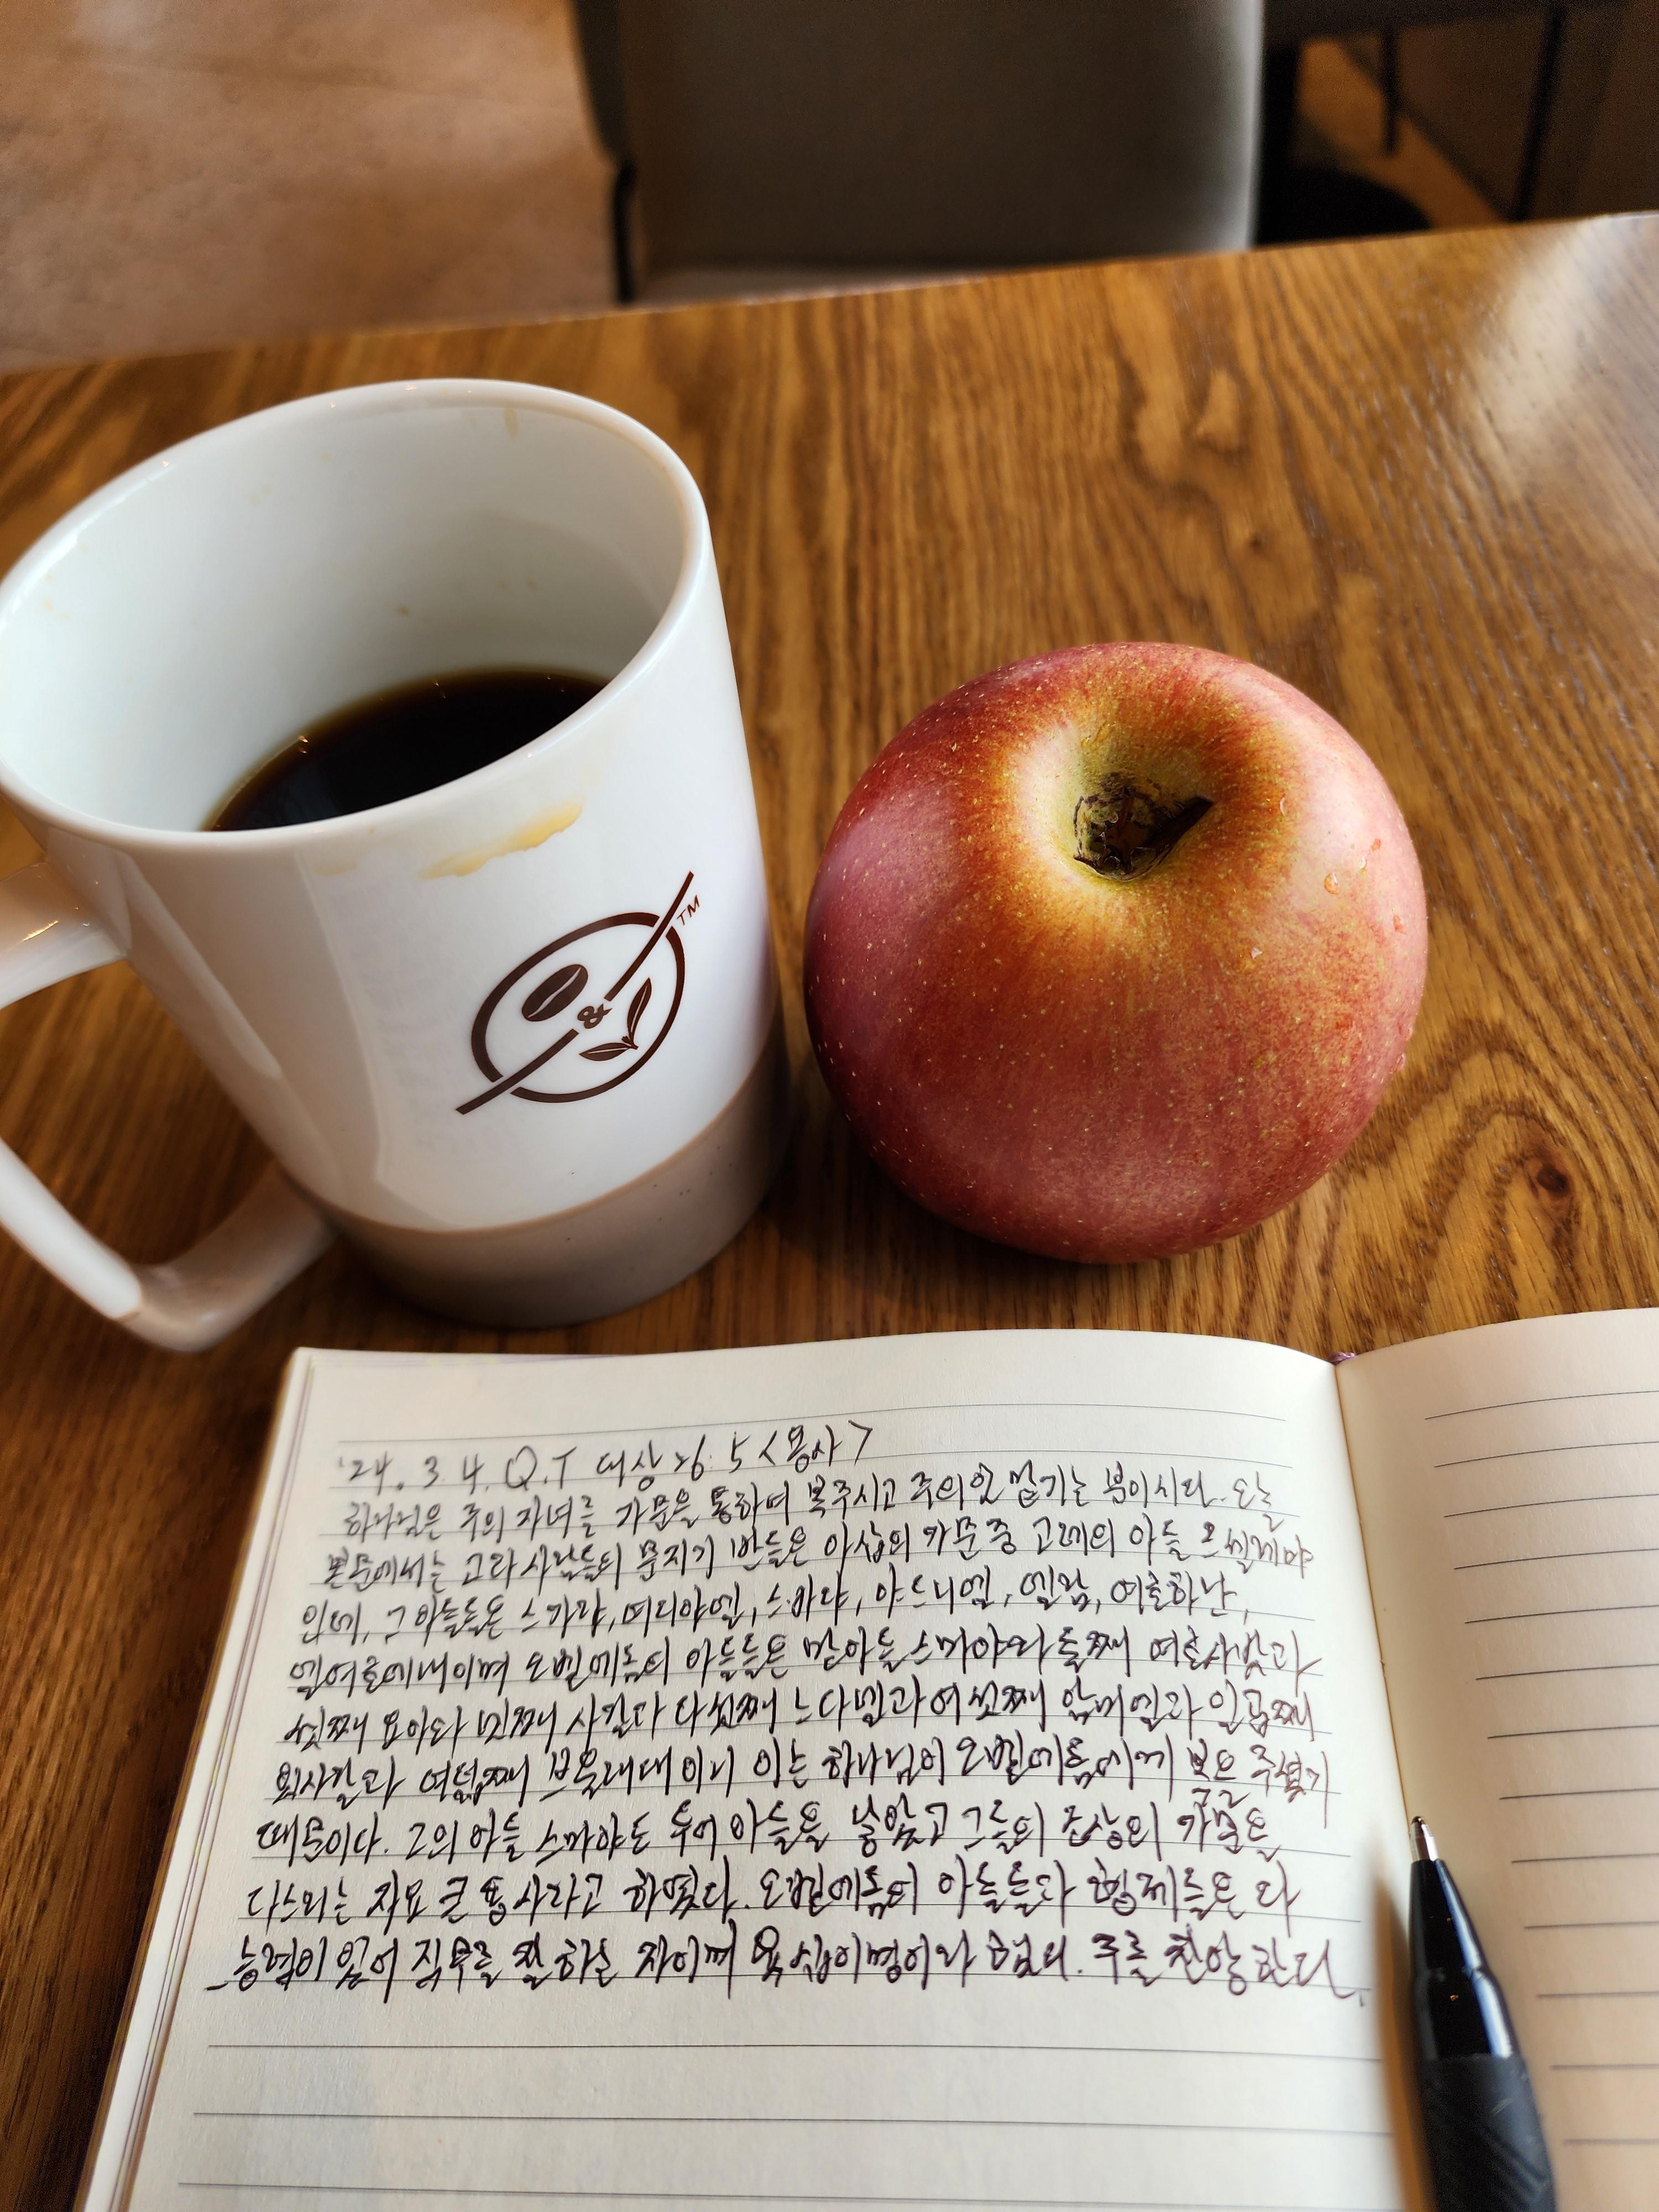 &
TM
'24. 3. 4. Q.T 대상 26:5 <용사>
하나님은 주의 자녀를 가문을 통하여 복주시고 주의 일 맡기는 분이시다. 오늘
본문에서는 고라 사람들의 문지기 반들은 아삽의 가문 중 고레의 아들 므셀레먀
인데, 그 아들들은 스가랴, 여디야엘, 스바댜, 야드니엘, 엘람, 여호하난,
엘여호에내이며 오벧에돔의 아들들은 맏아들 스마야와 둘째 여호사밧과
셋째 요아와 넷째 사갈과 다섯째 느다넬과 여섯째 암미엘과 일곱째
잇사갈과 여덟째 브울래대이니 이는 하나님이 오벧에돔에게 복을 주셨기
때문이다. 그의 아들 스마야도 두어 아들을 낳았고 그들의 조상의 가문을
다스리는 자요 큰 용사라고 하였다. 오벧에돔의 아들들과 형제들은 다
능력이 있어 직무를 잘 하는 자이며 육십이명이라 한다. 주를 찬양한다.